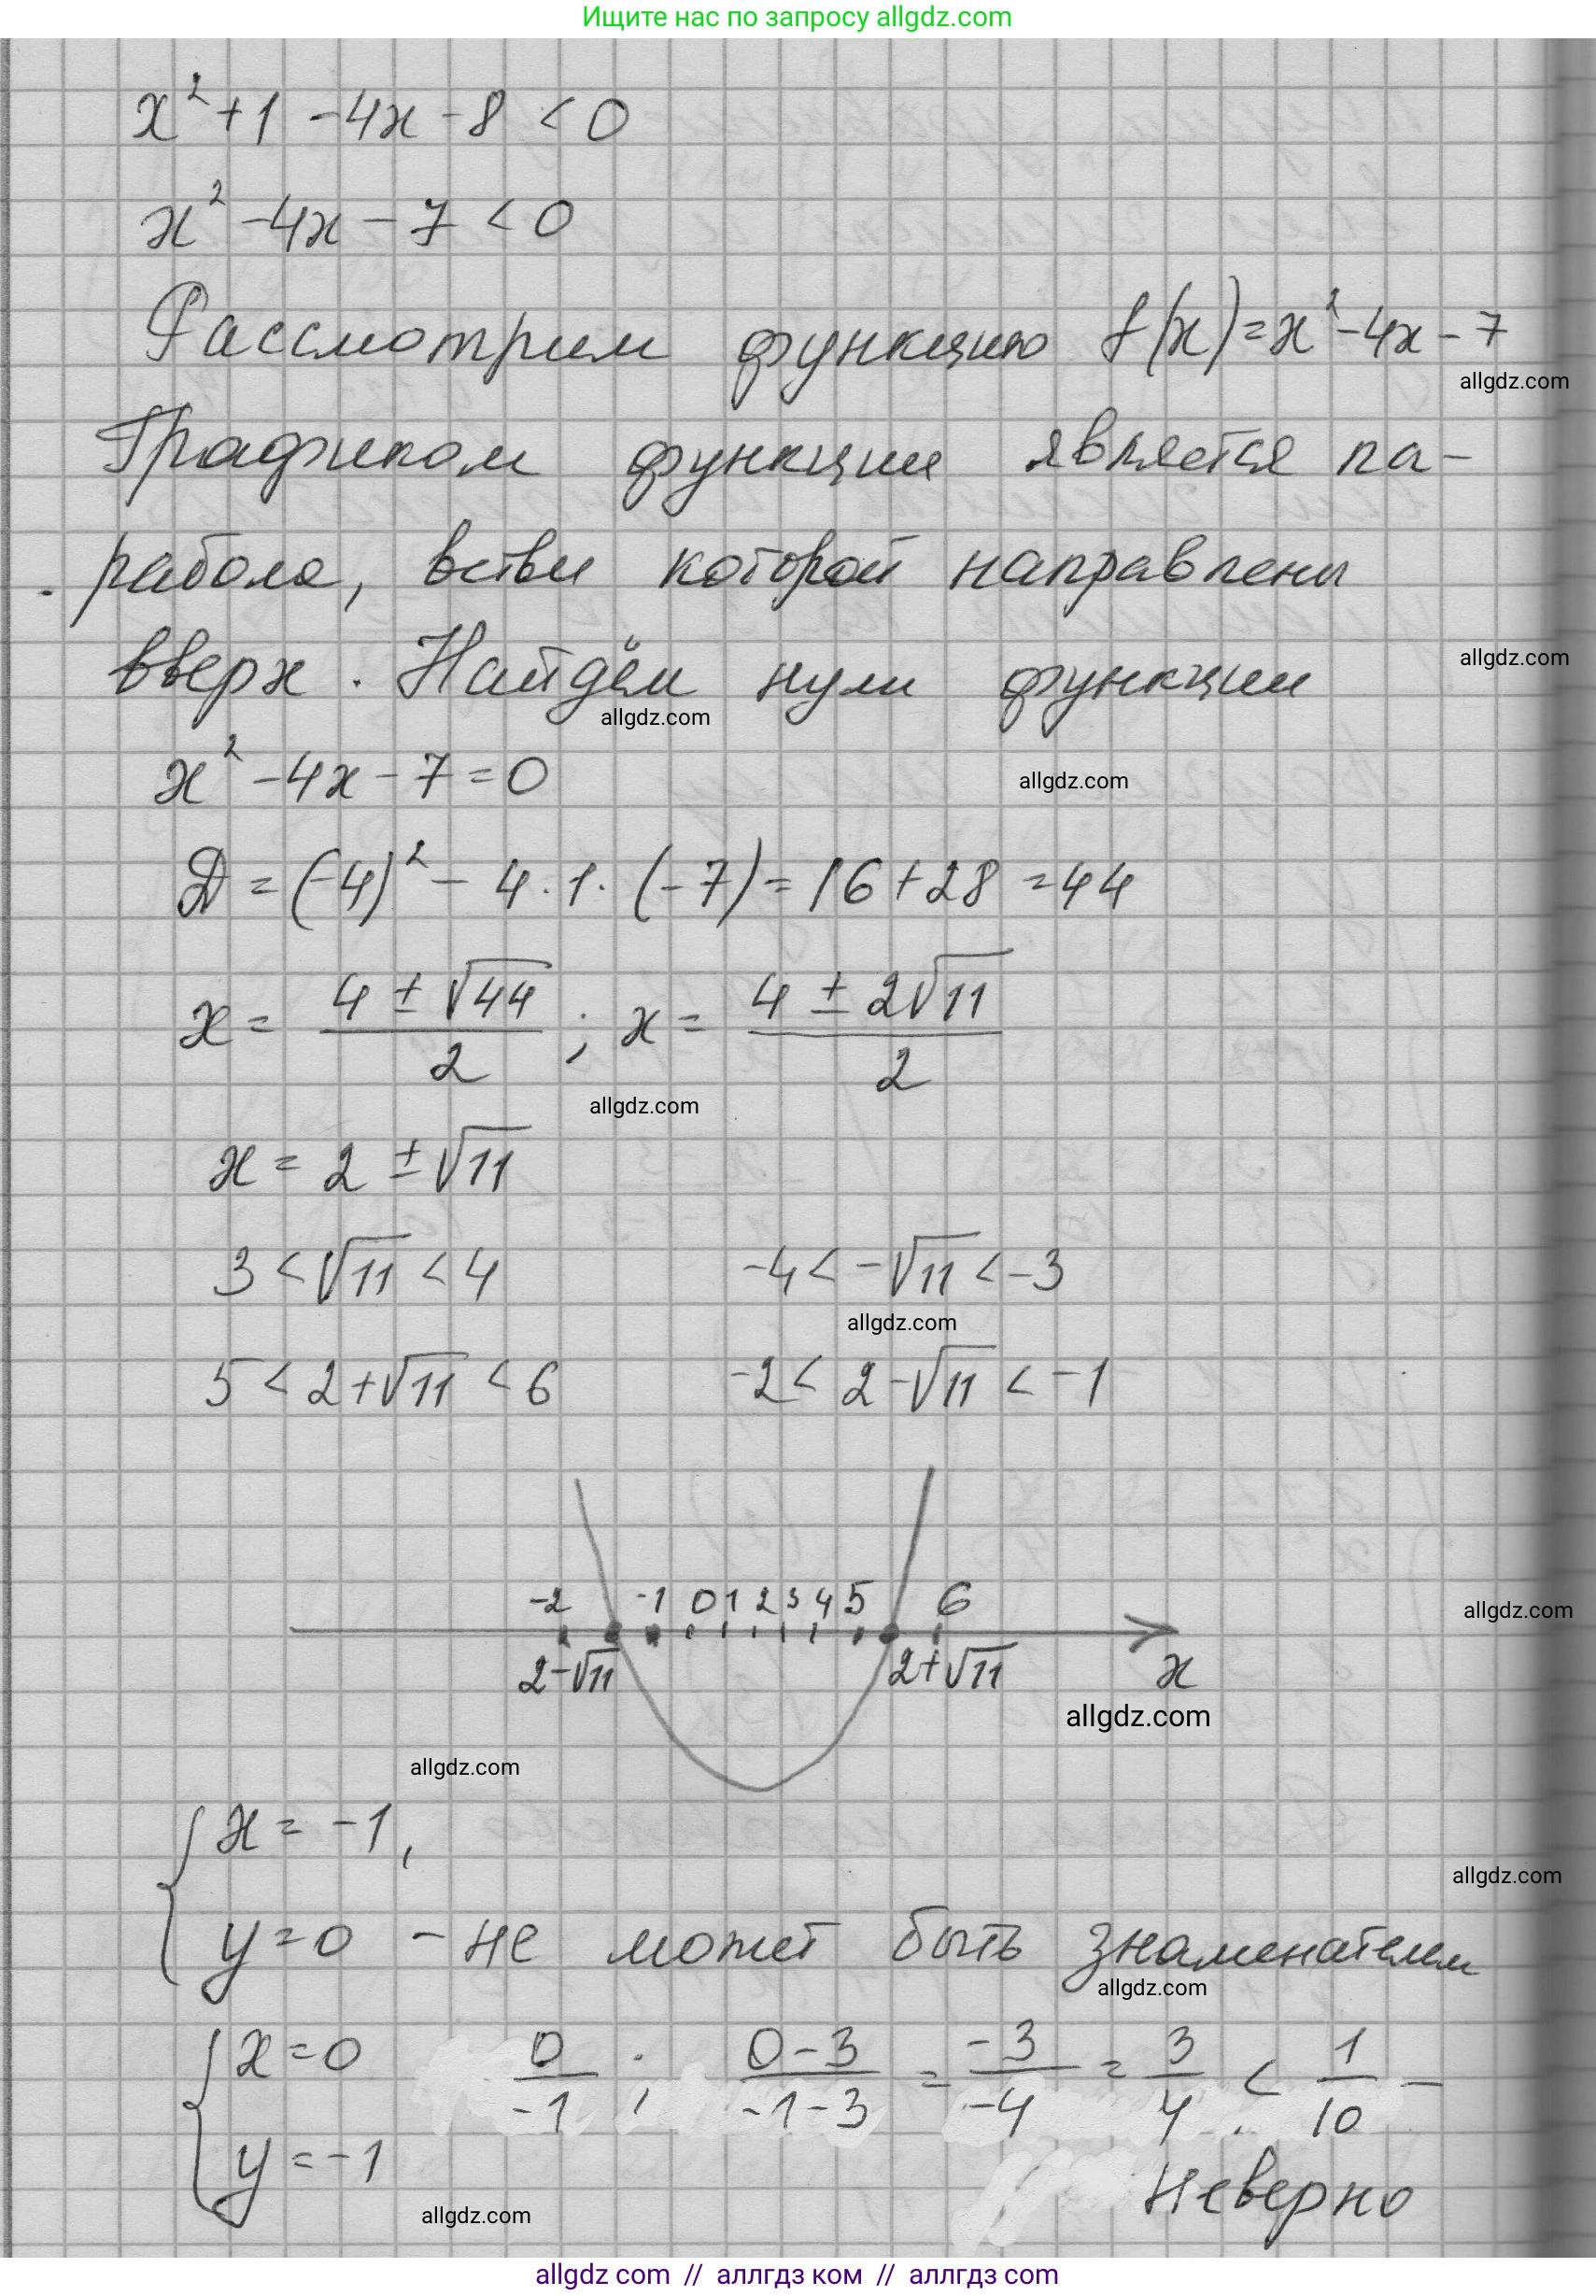 Ищите нас по запросу allgdz.com
x² + 1 - 4x - 8 < 0
x² - 4x - 7 < 0
Рассмотрим функцию f(x) = x² - 4x - 7
allgdz.com
Графиком функции является па-
рабола, ветви которой направлены
вверх. Найдём нули функции
allgdz.com
allgdz.com
x² - 4x - 7 = 0
allgdz.com
Д = (-4)² - 4 · 1 · (-7) = 16 + 28 = 44
x = (4 ± √44)/2 ; x = (4 ± 2√11)/2
allgdz.com
x = 2 ± √11
3 < √11 < 4 -4 < -√11 < -3
allgdz.com
5 < 2 + √11 < 6 -2 < 2 - √11 < -1
-2 -1 0 1 2 3 4 5 6
allgdz.com
2-√11 2+√11 x
allgdz.com
allgdz.com
{ x = -1,
allgdz.com
y = 0 - не может быть знаменателем
allgdz.com
{ x = 0 0/-1 ; (0-3)/(-1-3) = -3/-4 = 3/4 < 1/10 -
y = -1 неверно
allgdz.com
allgdz com // аллгдз ком // аллгдз com